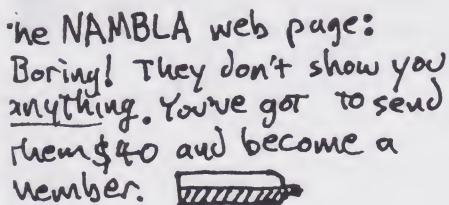 he NAMBLA web page:
Boring! They don't show you
anything. You've got to send
them $40 and become a
member.